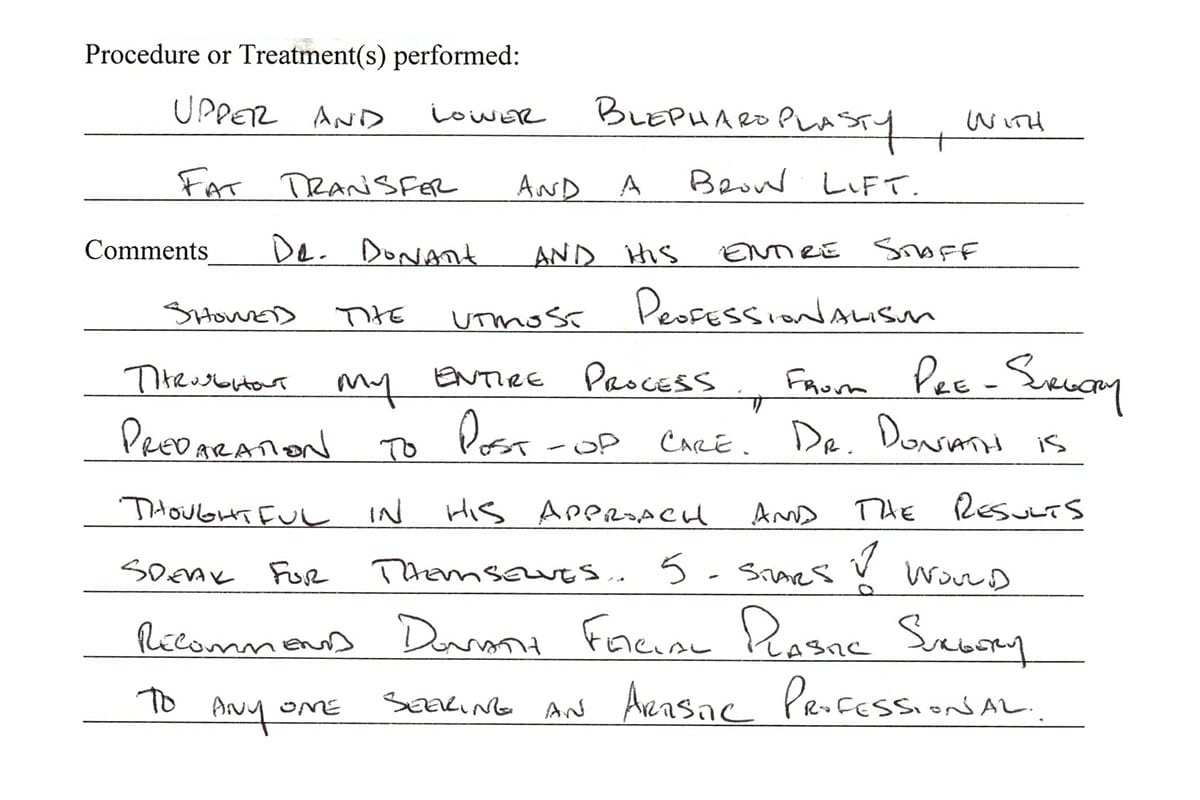 Procedure or Treatment(s) performed:
UPPER AND LOWER BLEPHAROPLASTY, WITH
FAT TRANSFER AND A BROW LIFT.
Comments DR. DONATH AND HIS ENTIRE STAFF
SHOWED THE UTMOST PROFESSIONALISM
THROUGHOUT MY ENTIRE PROCESS, FROM PRE-SURGERY
PREPARATION TO POST-OP CARE. DR. DONATH IS
THOUGHTFUL IN HIS APPROACH AND THE RESULTS
SPEAK FOR THEMSELVES.. 5-STARS! WOULD
RECOMMEND DONATH FACIAL PLASTIC SURGERY
TO ANYONE SEEKING AN ARTISTIC PROFESSIONAL.